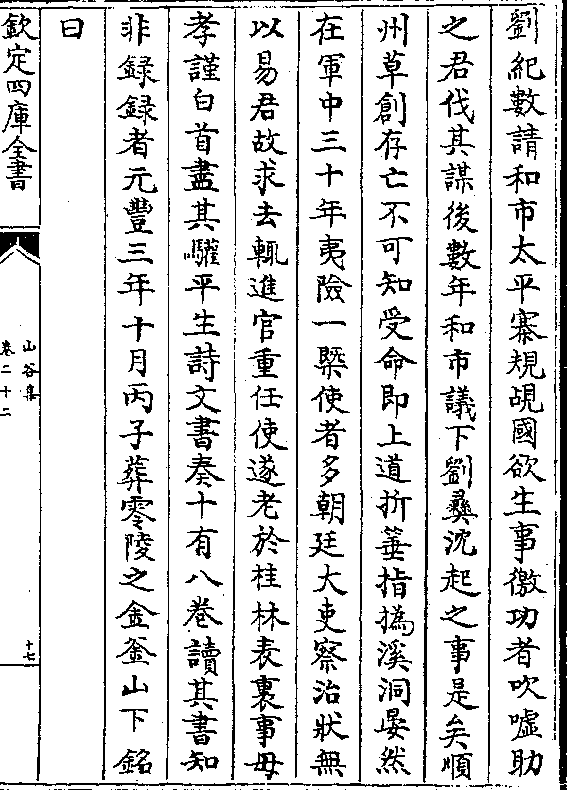 劉紀數請和市太平寨規覘國欲生事徼功者吹噓助
之君伐其謀後數年和市議下劉彝沈起之事是矣順
州草創存亡不可知受命即上道折箠指撝溪洞晏然
在軍中三十年夷險一槩使者多朝廷大吏察治狀無
以易君故求去輒進官重任使遂老於桂林表裏事母
孝謹白首盡其驩平生詩文書奏十有八巻讀其書知
非録録者元豐三年十月丙子葬零陵之金釜山下銘
曰
欽定四庫全書
山谷集
卷二十二
十七